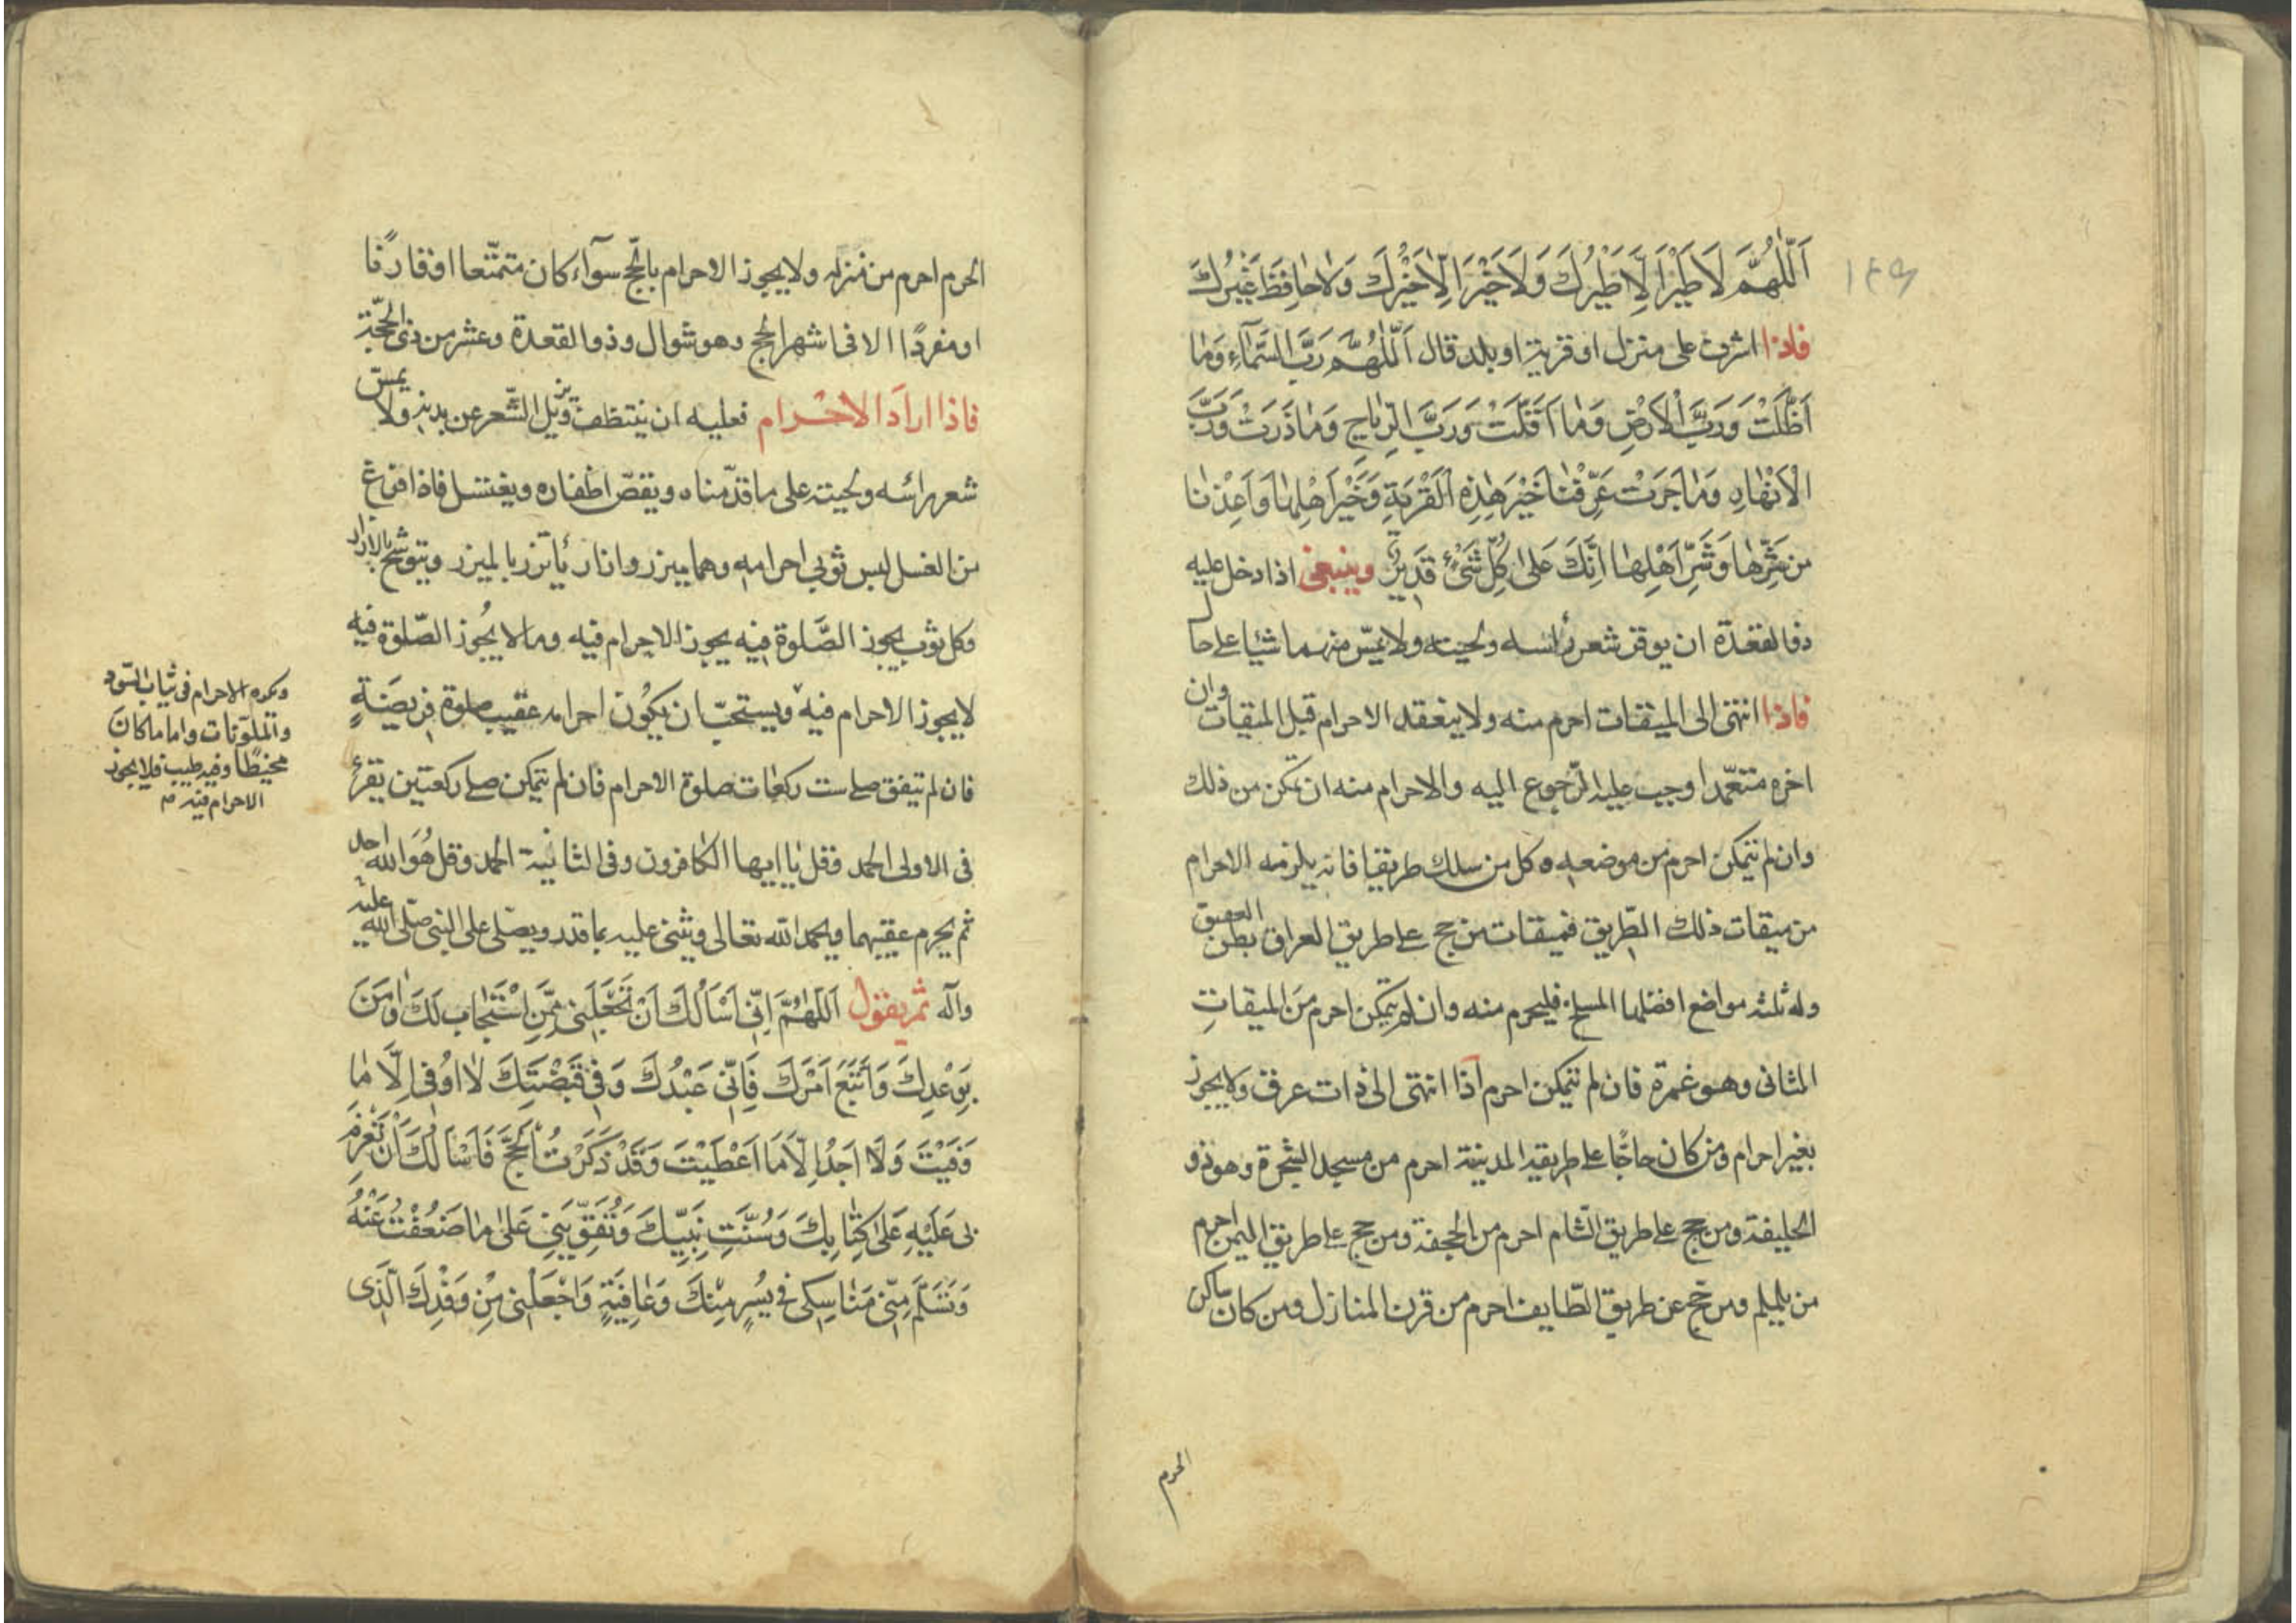 ١٤٩
اَللّٰهُمَّ لَا طَيْرَ اِلَّا طَيْرُكَ وَلَا خَيْرَ اِلَّا خَيْرُكَ وَلَا حٰافِظَ غَيْرُكَ
فاذا اشرف على منزل او قرية او بلد قال اَللّٰهُمَّ رَبَّ السَّمٰآءِ وَمٰا
اَظَلَّتْ وَرَبَّ الْاَرْضِ وَمٰا اَقَلَّتْ وَرَبَّ الرِّيٰاحِ وَمٰا ذَرَتْ وَرَبَّ
الْاَنْهٰارِ وَمٰا جَرَتْ عَرِّفْنٰا خَيْرَ هٰذِهِ الْقَرْيَةِ وَخَيْرَ اَهْلِهٰا وَاَعِذْنٰا
مِنْ شَرِّهٰا وَشَرِّ اَهْلِهٰا اِنَّكَ عَلىٰ كُلِّ شَىْءٍ قَدِيرٌ وينبغى اذا دخل عليه
ذو القعدة ان يوفر شعر رأسه ولحيته ولا يمسّ منهما شيئا على حال
فاذا انتهى الى الميقات احرم منه ولا ينعقد الاحرام قبل الميقات وان
اخره متعمّدا وجب عليه الرّجوع اليه والاحرام منه ان تمكن من ذلك
وان لم يتمكن احرم من موضعه وكل من سلك طريقا فانه يلزمه الاحرام
من ميقات ذلك الطّريق فميقات من حج على طريق العراق بطن العقيق
وله ثلثه مواضع افضلها المسلخ فليحرم منه وان لم يتمكن احرم من الميقات
الثانى وهو غمرة فان لم يتمكن احرم اذا انتهى الى ذات عرق ولا يجوز
بغير احرام ومن كان حاجّا على طريقه المدينة احرم من مسجد الشجرة وهو ذو
الحليفة ومن حج على طريق الشّام احرم من الجحفة ومن حج على طريق اليمن احرم
من يلملم ومن حج عن طريق الطّايف احرم من قرن المنازل ومن كان ساكن
الحرم
الحرم احرم من منزله ولا يجوز الاحرام بالحّج سوآء كان متمتّعا او قارنًا
او مفردًا الا فى اشهر الحج وهو شوال وذو القعدة وعشر من ذى الحجّة
فاذا ارادَ الاحرام فعليه ان يتنظف ويزيل الشّعر عن بدنه ولا يمسّ
شعر رائسه ولحيته على ما قدّمناه ويقصّ اظفاره ويغتسل فاذا فرغ
من الغسل لبس ثوبى احرامه وهما ميزر وازار يأتزر بالميزر ويتوشح بالازار
وكل ثوب يجوز الصَّلوة فيه يجوز الاحرام فيه وما لا يجُوز الصّلوة فيه
لا يجوز الاحرام فيه ويستحبّ ان يكوُن احرامه عقيب صلوة فريضَةٍ
فان لم يتفق صلى ست ركعات صلوة الاحرام فان لم يتمكن صلى ركعتين يقرء
فى الاولى الحمد وقل يٰا ايها الكافرون وفى الثانية الحمد وقل هُوَ الله احد
ثم يحرم عقيبهما ويحمد الله تعالى ويثنى عليه بما قدر ويصّلى على النبى صلى الله عليه
وآله ثم يقول اَللّٰهُمَّ اِنّى اَسْاَلُكَ اَنْ تَجْعَلَنى مِمَّنِ اسْتَجٰابَ لَكَ وَامَنَ
بِوَعْدِكَ وَاتَّبَعَ اَمْرَكَ فَاِنّى عَبْدُكَ وَفى قَبْضَتِكَ لٰا اوُقٰى اِلَّا مٰا
وَقَيْتَ وَلَا اجِدُ اِلَّا مَا اَعْطَيْتَ وَقَدْ ذَكَرْتُ الْحَجَّ فَاَسْاَلُكَ اَنْ تَعْزِمَ
لى عَلَيْهِ عَلىٰ كِتٰابِكَ وَسُنَّتِ نَبِيِّكَ وَتُقَوِّيَنى عَلىٰ مٰا ضَعُفْتُ عَنْهُ
وَتَسَلَّمَ مِنّى مَنٰاسِكى فى يُسْرٍ مِنْكَ وَعٰافِيَةٍ وَاجْعَلْنى مِنْ وَفْدِكَ الَّذى
ويكره الاحرام فى ثياب السّود
والملوّنات واما ما كان
مخيطًا وفيه طيب فلا يجوز
الاحرام فيه م